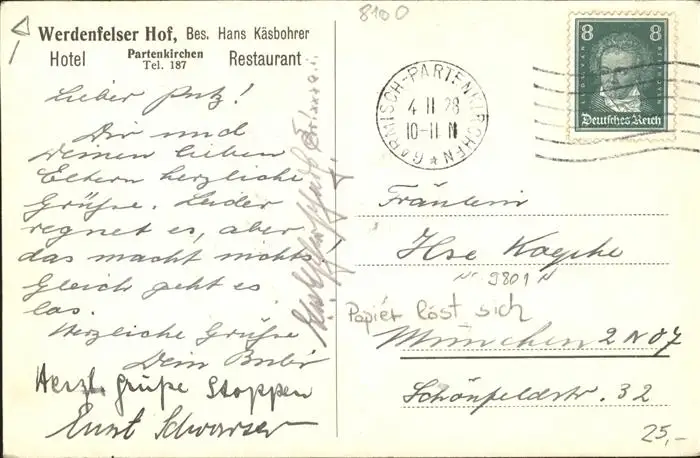 Werdenfelser Hof, Bes. Hans Käsbohrer
Partenkirchen
Hotel Restaurant
Tel. 187
Lieber Putz!
Dir und
Deinen lieben
Eltern herzliche
Grüße. Leider
regnet es, aber
das macht nichts!
Gleich geht es
los.
Herzliche Grüße
Dein Bubi
Herzl. Grüße Stoppen
Ernst Schwarzer
8100
GARMISCH-PARTENKIRCHEN
4 II 28
10-11 N
8 8
LUDWIG VAN
BEETHOVEN
Deutsches Reich
Fräulein
Ilse Koepke
9801
Papier löst sich
München 2 NO7
Schönfeldstr. 32
25,-